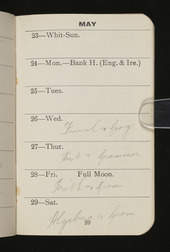 MAY
23—Whit-Sun.
24—Mon.—Bank H. (Eng. & Ire.)
25—Tues.
26—Wed.
French & Geog
27—Thur.
& Grammar
28—Fri. Full Moon.
29—Sat.
Algebra & Geom